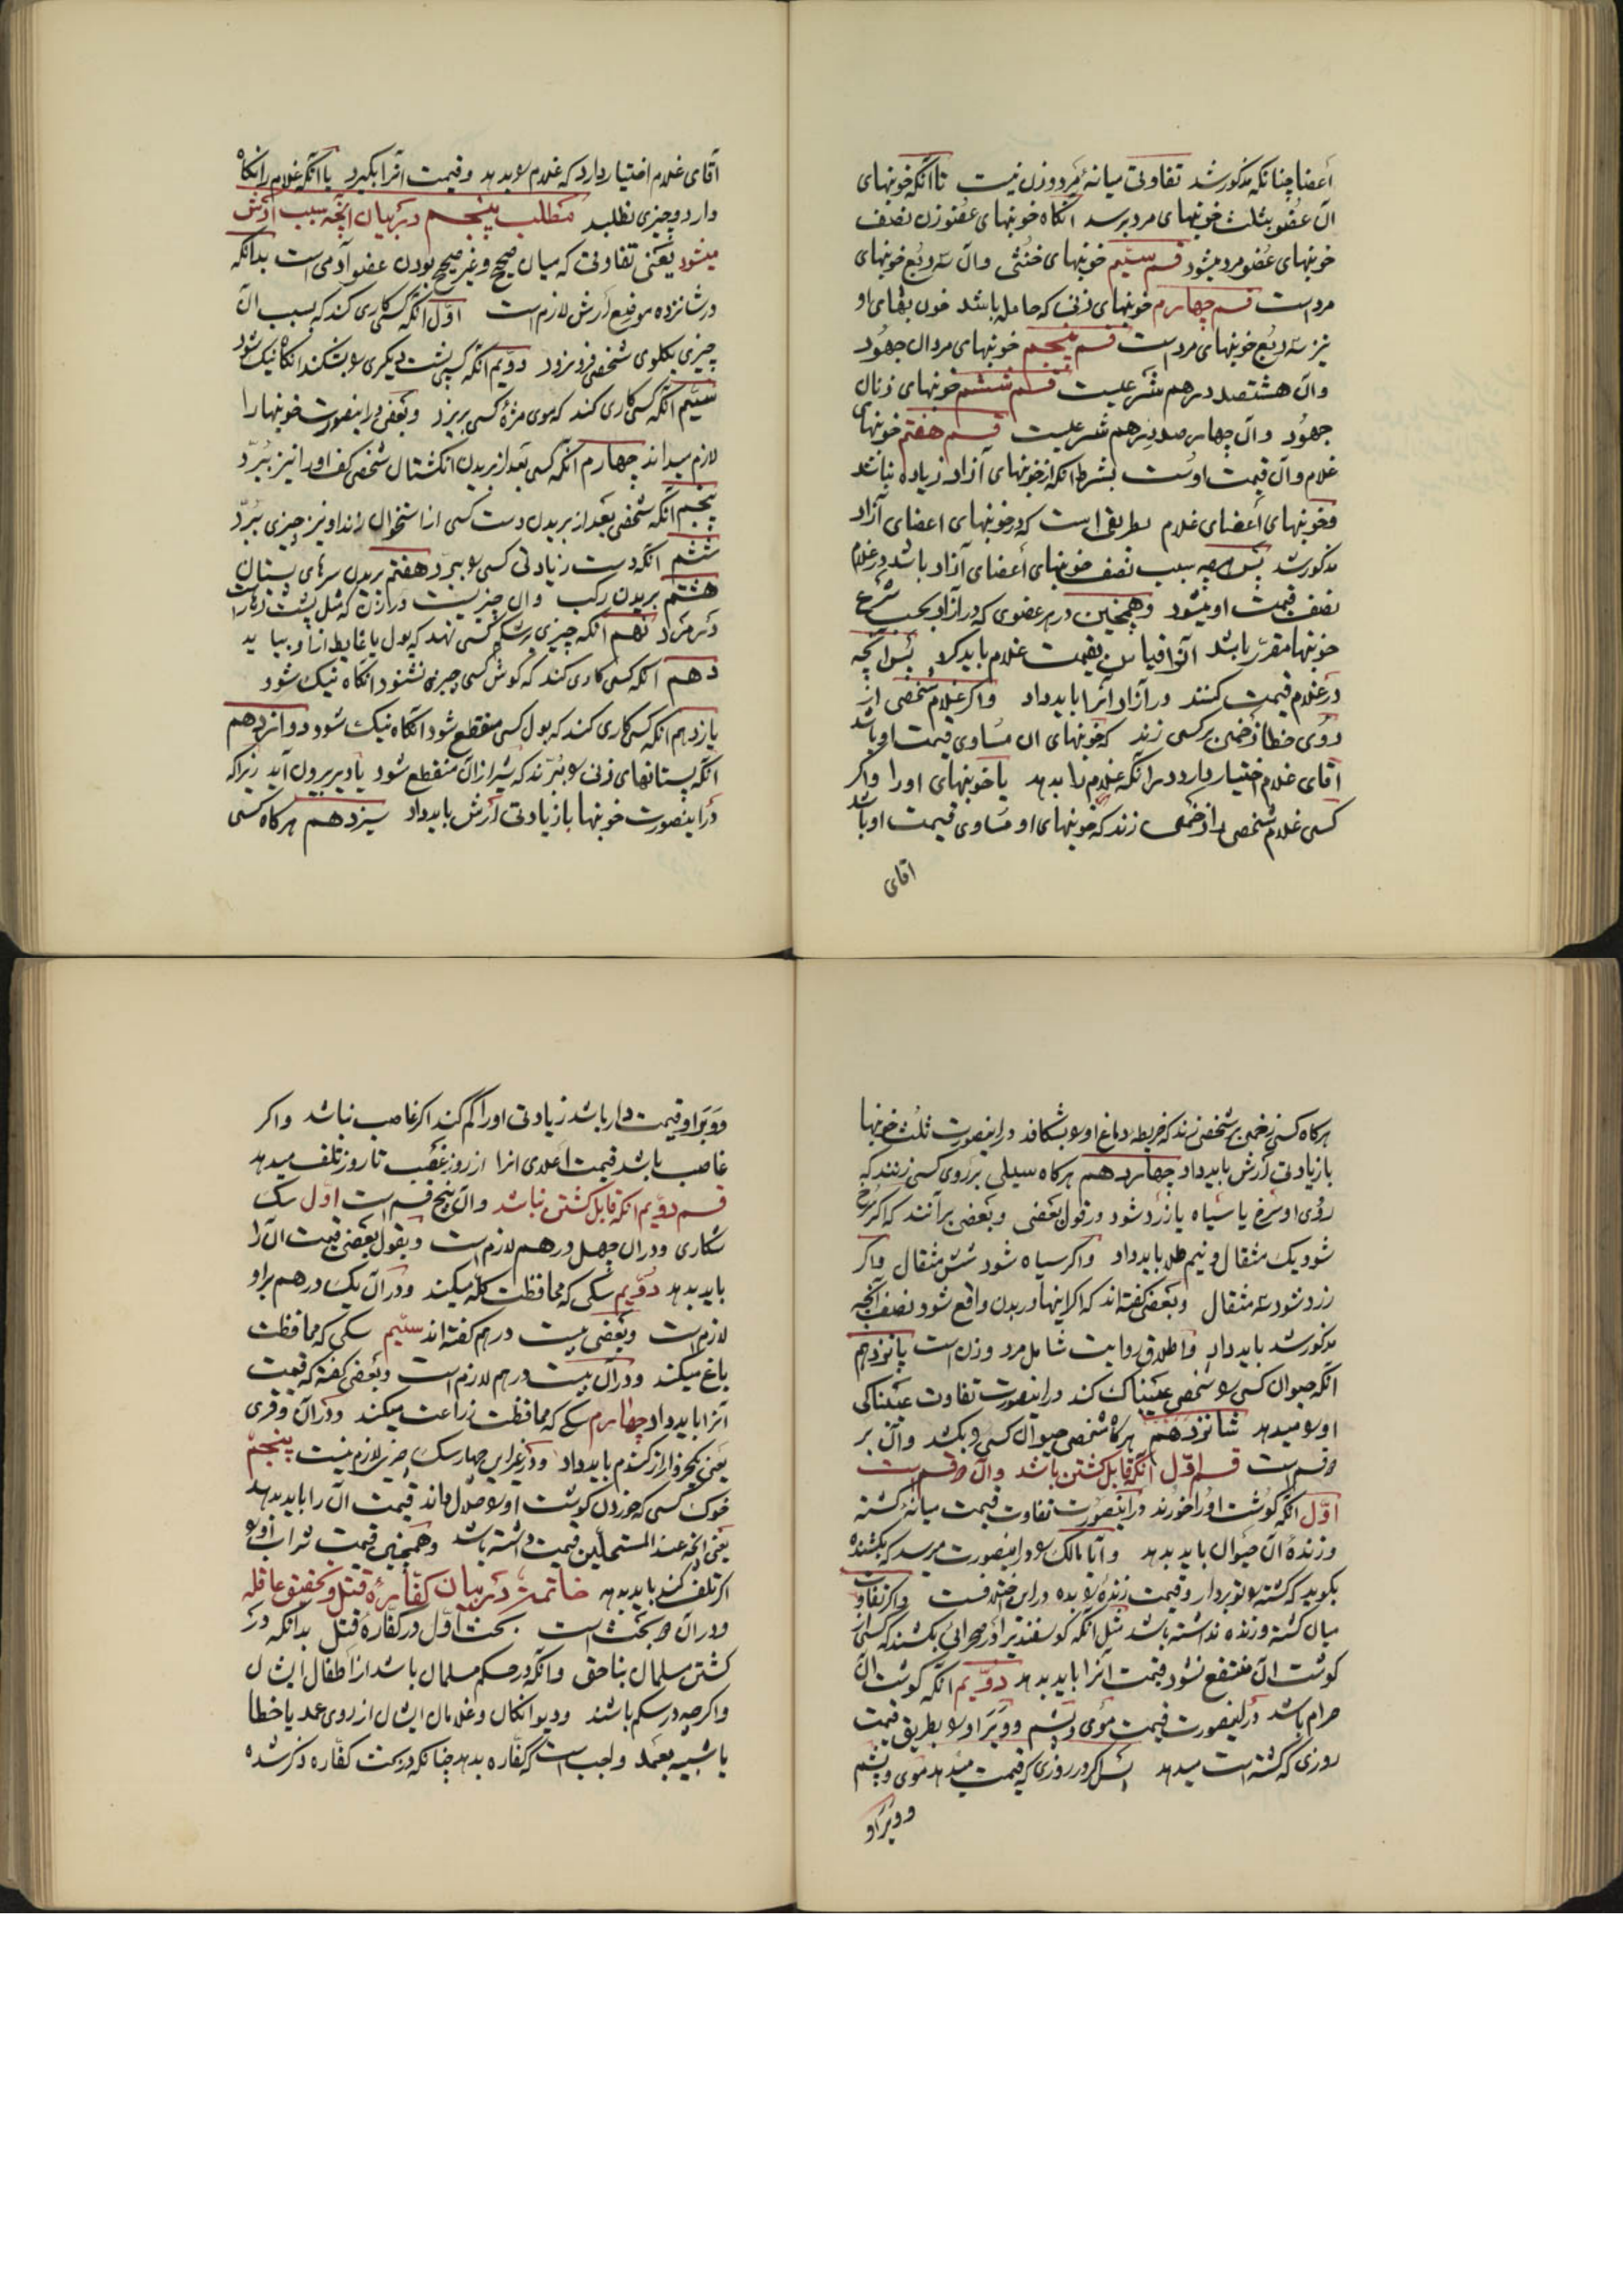 أعضا چنانکه مذکور شد تفاوتی میانهٔ مرد و زن نیست تا آنکه خونبهای
آن عضو بثلث خونبهای مرد برسد آنگاه خونبهای عضو زن نصف
خونبهای عضو مرد میشود قسم سیّم خونبهای خنثی و آن سه ربع خونبهای
مرد است قسم چهارم خونبهای زنی که حامله باشد خون بهای او
نیز سه ربع خونبهای مرد است قسم پنجم خونبهای مردان جهود
و آن هشتصد درهم شرعیست قسم ششم خونبهای زنان
جهود و آن چهارصد درهم شرعیست قسم هفتم خونبهای
غلام و آن قیمت اوست بشرط آنکه از خونبهای آزاد زیاده نباشد
و خونبهای أعضای غلام بطریقی است که در خونبهای اعضای آزاد
مذکور شد پس هرچه سبب نصف خونبهای أعضای آزاد باشد در غلام
نصف قیمت او میشود و همچنین در هر عضوی که در آزاد بحسب شرع
خونبها مقرّر باشد آنرا قیاس بقیمت غلام باید کرد پس آنچه
در غلام قیمت کنند در آزاد آنرا باید داد و اگر غلام شخصی از
روی خطا زخمی بر کسی زند که خونبهای آن مساوی قیمت او باشد
آقای غلام اختیار دارد در آنکه غلام را بدهد یا خونبهای او را و اگر
کسی غلام شخصی را زخمی زند که خونبهای او مساوی قیمت او باشد
آقای
آقای غلام اختیار دارد که غلام را بدهد و قیمت آنرا بگیرد یا آنکه غلام را نگاه
دارد و چیزی نطلبد مطلب پنجم در بیان آنچه سبب أرش
میشود یعنی تفاوتی که میان صحیح و غیر صحیح بودن عضو آدمی است بدانکه
در شانزده موضع أرش لازم است اوّل آنکه کسی کاری کند که بسبب آن
چیزی بگلوی شخصی فرو نرود دویم آنکه کسی پشت دیگری را بشکند آنگاه نیک شود
سیّم آنکه کسی کاری کند که موی مژهٔ کسی بریزد و بعضی در اینصورت خونبها را
لازم میدانند چهارم آنکه کسی بعد از بریدن انگشتان شخصی کف او را نیز ببرّد
پنجم آنکه شخصی بعد از بریدن دست کسی از استخوان زند او نیز چیزی ببرّد
ششم آنکه دست زیادتی کسی را ببرّد هفتم بریدن سرهای پستان
هشتم بریدن رکب و آن چیزیست در زن که مثل پشت زهار است
در مرد نهم آنکه چیزی بر شکم کسی نهد که بول یا غایط از او بیاید
دهم آنکه کسی کاری کند که گوش کسی چیزی نشنود آنگاه نیک شود
یازدهم آنکه کسی کاری کند که بول کسی منقطع شود آنگاه نیک شود دوازدهم
آنکه پستانهای زنی را ببرّند که شیر از آن منقطع شود یا دیر بیرون آید زیرا که
در اینصورت خونبها با زیادتی أرش باید داد سیزدهم هرگاه کسی
هرگاه کسی زخمی بر شخصی زند که خریطهٔ دماغ او را بشکافد در اینصورت ثلث خونبها
با زیادتی أرش باید داد چهاردهم هرگاه سیلی بر روی کسی زنند که
روی او سرخ یا سیاه یا زرد شود در قول بعضی و بعضی برآنند که اگر سرخ
شود یک مثقال و نیم طلا باید داد و اگر سیاه شود شش مثقال و اگر
زرد شود سه مثقال و بعضی گفته‌اند که اگر اینها در بدن واقع شود نصف آنچه
مذکور شد باید داد و اطلاق روایت شامل مرد و زن است پانزدهم
آنکه حیوان کسی را شخصی عیبناک کند در اینصورت تفاوت عیبناکی
او را میدهد شانزدهم هرگاه شخصی حیوان کسی را بکشد و آن بر
دو قسم است قسم اوّل آنکه قابل کشتن باشد و آن دو قسم است
اوّل آنکه گوشت او را خورند در اینصورت تفاوت قیمت میانهٔ کشته
و زندهٔ آن حیوان باید بدهد و آیا مالک را در اینصورت میرسد که بکشنده
بگوید که کشته را تو بردار و قیمت زنده را بده در این خلافست و اگر تفاوت
میان کشته و زنده نداشته باشد مثل آنکه گوسفندیرا در صحرائی بکشند که کسی از
گوشت آن منتفع نشود قیمت آنرا باید بدهد دویّم آنکه گوشت آن
حرام باشد در اینصورت قیمت موی و پشم و وَبَر او را بطریق قیمت
روزی که کشته است میدهد پس اگر در روزی که قیمت میدهد موی و پشم
و وبر او
و وَبَر او قیمت دار باشد زیادتی او را کم کند اگر غاصب نباشد و اگر
غاصب باشد قیمت اعلای آنرا از روز غصب تا روز تلف میدهد
قسم دویّم آنکه قابل کشتن نباشد و آن پنج قسم است اوّل سک
شکاری و در آن چهل درهم لازم است و بقول بعضی قیمت آن را
باید بدهد دویّم سکی که محافظت گله میکند و در آن یک درهم بر او
لازم است و بعضی بیست درهم گفته‌اند سیّم سکی که محافظت
باغ میکند و در آن بیست درهم لازم است و بعضی گفته که قیمت
آنرا باید داد چهارم سکی که محافظت زراعت میکند و در آن وقری
یعنی یکخروار از گندم باید داد و در غیر این چهار سک چیزی لازم نیست پنجم
خوک کسی که خوردن گوشت او را حلال داند قیمت آن را باید بدهد
یعنی آنچه عند المستحلّین قیمت داشته باشد و همچنین قیمت شراب او را
اگر تلف کند باید بدهد خاتمه در بیان کفّارهٔ قتل و تحقیق عاقله
و در آن دو بحث است بحث اوّل در کفّارهٔ قتل بدانکه در
کشتن مسلمان بناحق و آنکه در حکم مسلمان باشد از اطفال ایشان
و اگرچه در شکم باشند و دیوانگان و غلامان ایشان از روی عمد یا خطا
یا شبیه بعمد واجب است که کفّاره بدهد چنانکه در بحث کفّاره ذکر شده